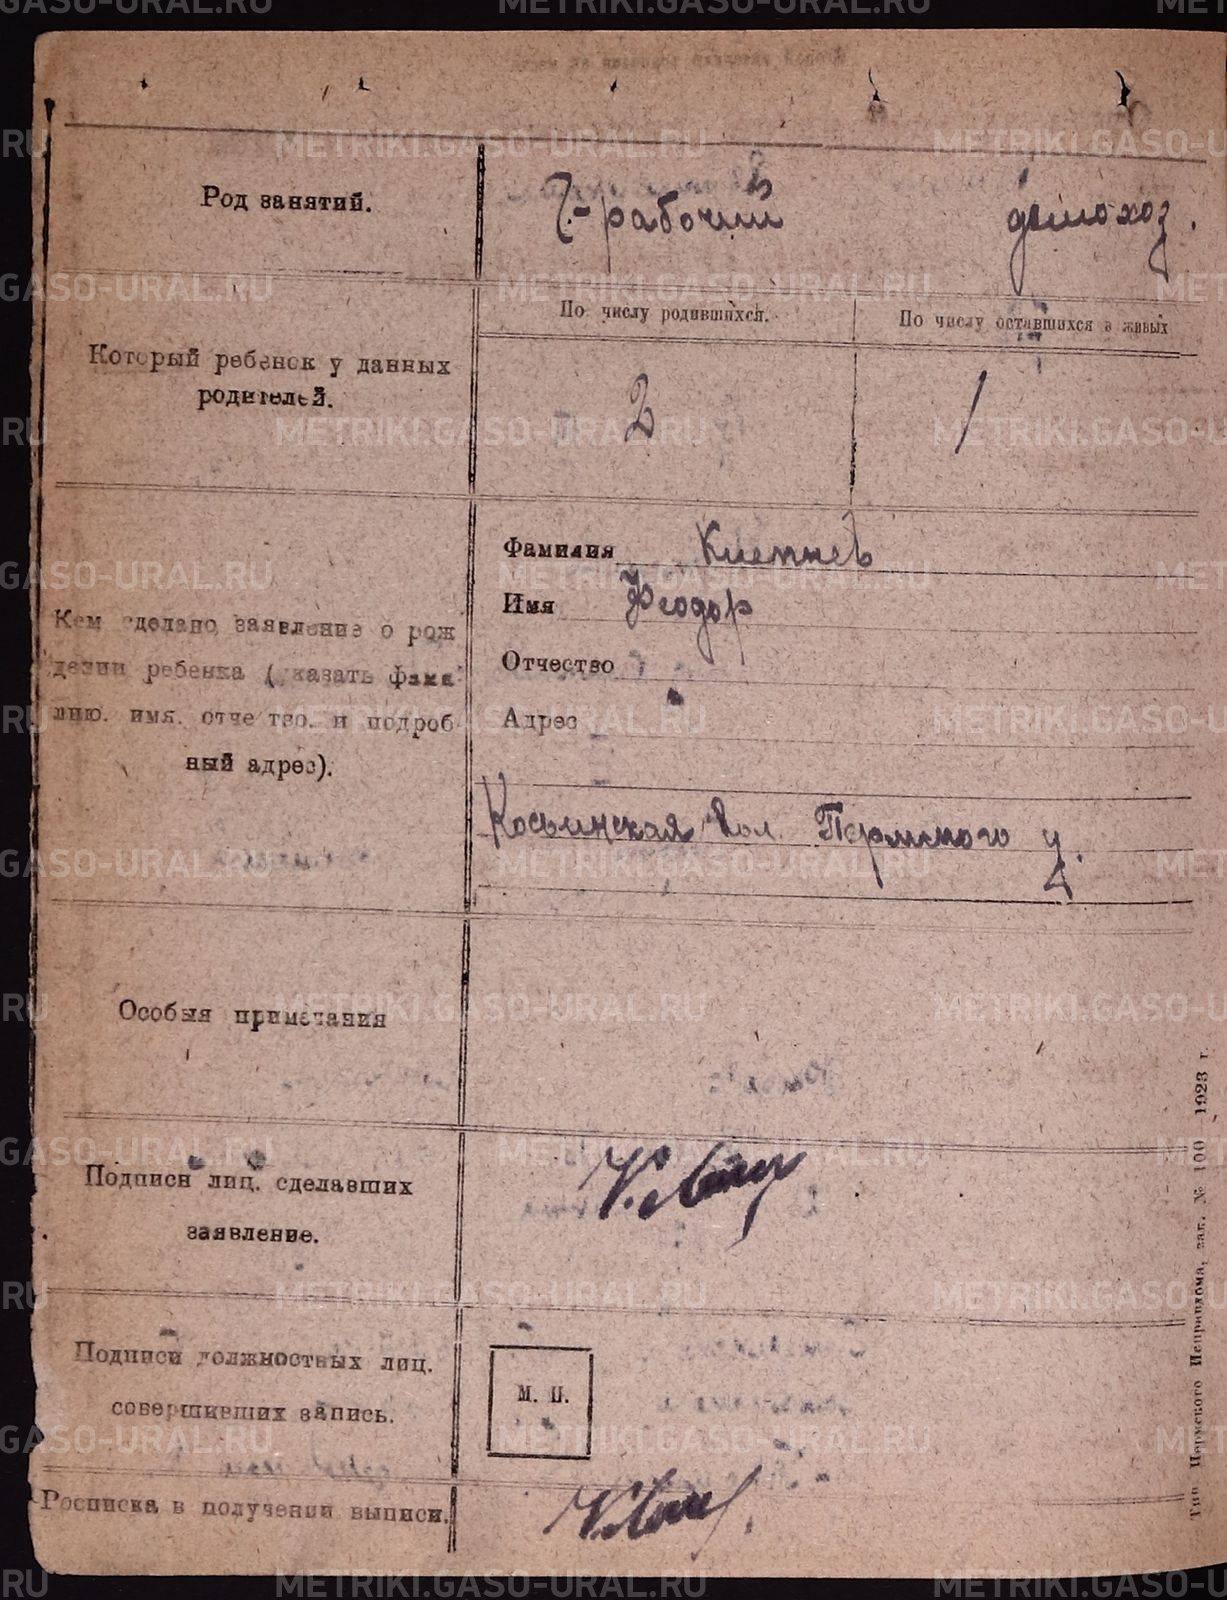 Род занятий.
рабочий
домохоз.
По числу родившихся.
По числу оставшихся в живых
Который ребенок у данных
родителей.
2
1
Фамилия
Имя Феодор
Отчество
Адрес
Кем сделано заявление о рож
дении ребенка (указать фами
лию, имя, отчество, и подроб
ный адрес).
вол. Пермского у.
Особыя примечания
Подписи лиц, сделавших
заявление.
Подписи должностных лиц,
совершивших запись.
М. П.
Росписка в получении выписи.
Тип. Пермского Исправдома, зак. № 100 1923 г.
METRIKI.GASO-URAL.RU